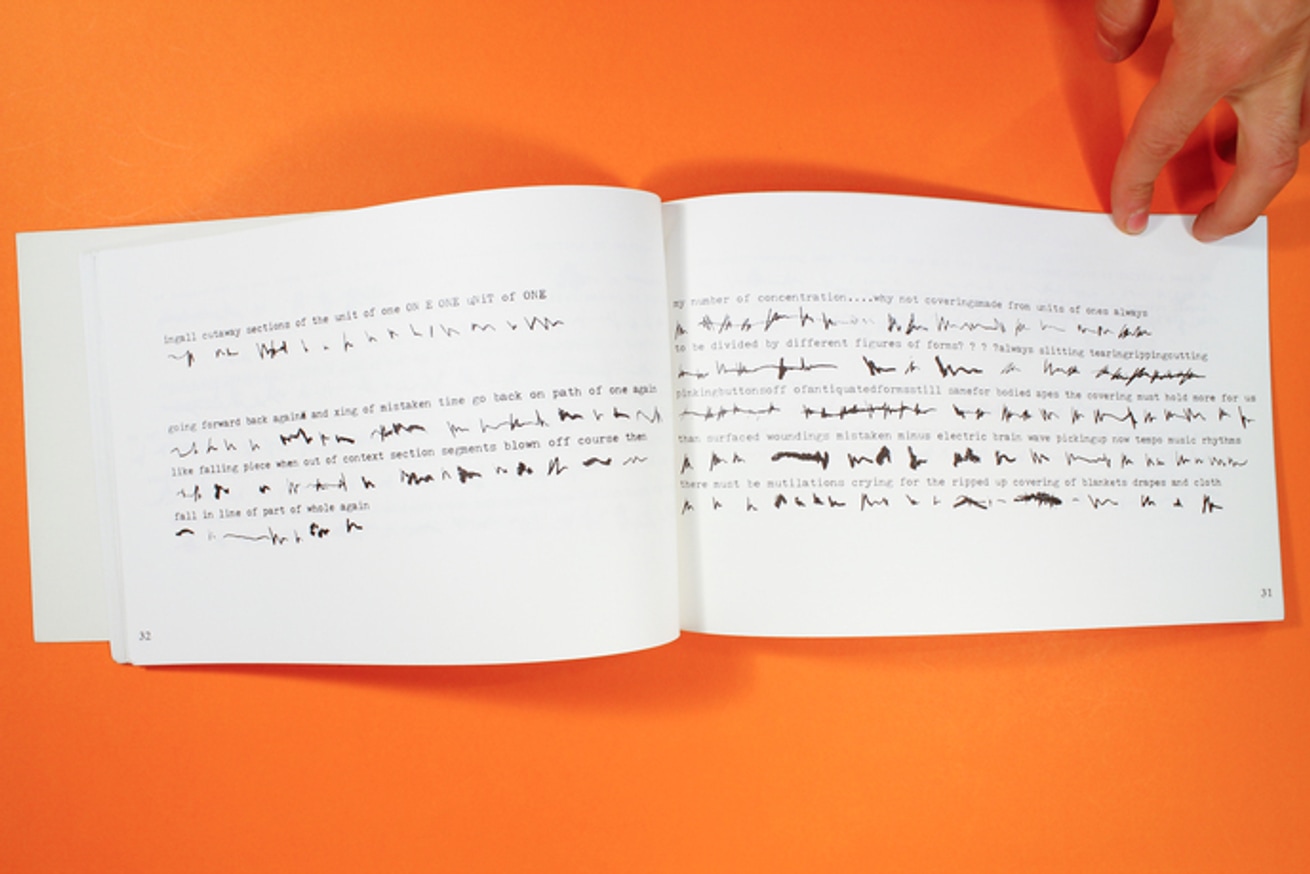 ingall cutaway sections of the unit of one ON E ONE uNiT of ONE
going forward back again and xing of mistaken time go back on path of one again
like falling piece when out of context section segments blown off course then
fall in line of part of whole again
32
my number of concentration....why not coveringsmade from units of ones always
to be divided by different figures of forms? ? ?always slitting tearingrippingcutting
pinkingbuttonsoff ofantiquatedformsstill samefor bodied apes the covering must hold more for us
than surfaced woundings mistaken minus electric brain wave pickingup now tempo music rhythms
there must be mutilations crying for the ripped up covering of blankets drapes and cloth
31